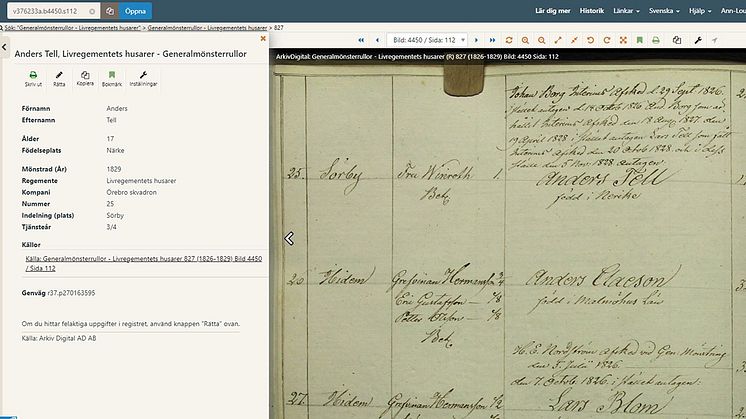 v376233a.b4450.s112
Öppna
Lär dig mer Historik Länkar Svenska Hjälp Ann-Lou
Sök: "Generalmönsterrullor - Livregementets husarer" > Generalmönsterrullor - Livregementets husarer > 827
Bild: 4450 / Sida: 112
ArkivDigital: Generalmönsterrullor - Livregementets husarer (R) 827 (1826-1829) Bild: 4450 Sida: 112
Anders Tell, Livregementets husarer - Generalmönsterrullor
Skriv ut Rätta Kopiera Bokmärk Inställningar
Förnamn Anders
Efternamn Tell
Ålder 17
Födelseplats Närke
Mönstrad (År) 1829
Regemente Livregementets husarer
Kompani Örebro skvadron
Nummer 25
Indelning (plats) Sörby
Tjänsteår 3/4
Källor
Källa: Generalmönsterrullor - Livregementets husarer 827 (1826-1829) Bild 4450
/ Sida 112
Genväg r37.p270163595
Om du hittar felaktiga uppgifter i registret, använd knappen "Rätta" ovan.
Källa: Arkiv Digital AD AB
Johan Berg Interims Afsked d. 29 Sept. 1826.
19 April 1828 i stället antagen Lars Tell som fått
Interims Afsked den 20 Octob 1828 och i dess
ställe den 5 Nov. 1828 antagen
25. Sörby Fru Winroth 1. Anders Tell
född i Nerike
26 Hidem Grefvinnan Hermansson Anders Claeson
Eric Gustafsson 1/8 född i Malmöhus Län
Petter Olsson 1/8
H. E. Nordström Afsked vid Gen. Mönstring
den 5 Julii 1826.
den 7 Octob. 1826. i stället antagen:
27. Hidem Grefvinnan Hermansson 1/2 Lars Blom